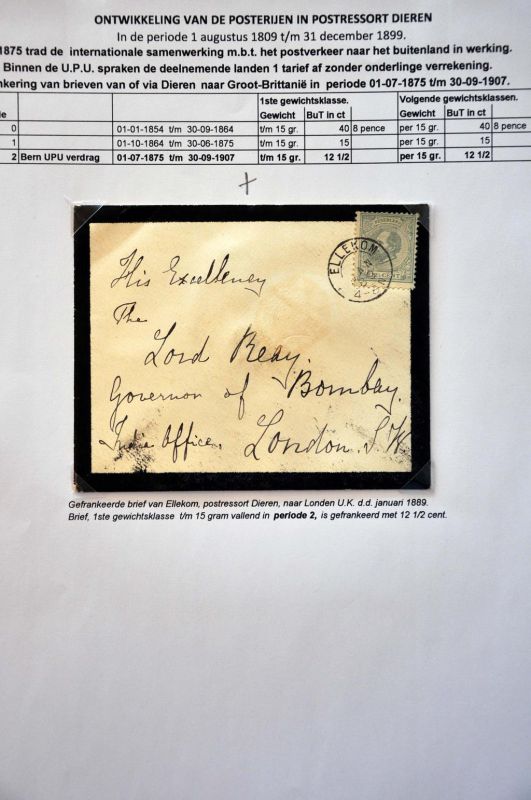 ONTWIKKELING VAN DE POSTERIJEN IN POSTRESSORT DIEREN
In de periode 1 augustus 1809 t/m 31 december 1899.
1875 trad de internationale samenwerking m.b.t. het postverkeer naar het buitenland in werking.
Binnen de U.P.U. spraken de deelnemende landen 1 tarief af zonder onderlinge verrekening.
nkering van brieven van of via Dieren naar Groot-Brittanië in periode 01-07-1875 t/m 30-09-1907.
1ste gewichtsklasse. Volgende gewichtsklassen.
de Gewicht BuT in ct Gewicht BuT in ct
0 01-01-1854 t/m 30-09-1864 t/m 15 gr. 40 8 pence per 15 gr. 40 8 pence
1 01-10-1864 t/m 30-06-1875 t/m 15 gr. 15 per 15 gr. 15
2 Bern UPU verdrag 01-07-1875 t/m 30-09-1907 t/m 15 gr. 12 1/2 per 15 gr. 12 1/2
ELLEKOM
His Excellency
The
Lord Reay.
Governor of Bombay.
India Office, London. S.W.
Gefrankeerde brief van Ellekom, postressort Dieren, naar Londen U.K. d.d. januari 1889.
Brief, 1ste gewichtsklasse t/m 15 gram vallend in periode 2, is gefrankeerd met 12 1/2 cent.